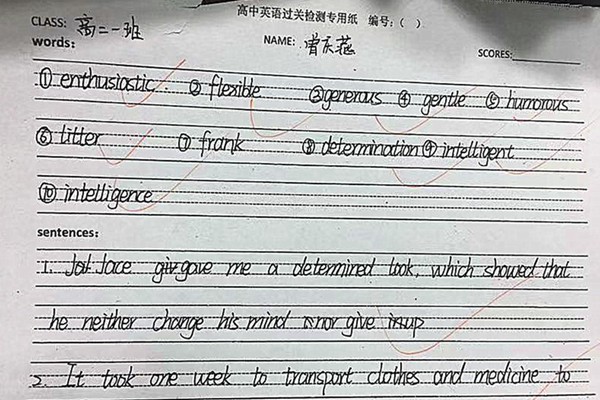 高中英语过关检测专用纸 编号:( )
CLASS: 高二一班 NAME: 曾庆蕊 SCORES:
words:
① enthusiastic ② flexible ③generous ④ gentle ⑤ humorous
⑥ litter ⑦ frank ⑧ determination ⑨ intelligent
⑩ intelligence
sentences:
1. Jace gave me a determined look, which showed that
he neither change his mind nor give up
2. It took one week to transport clothes and medicine to